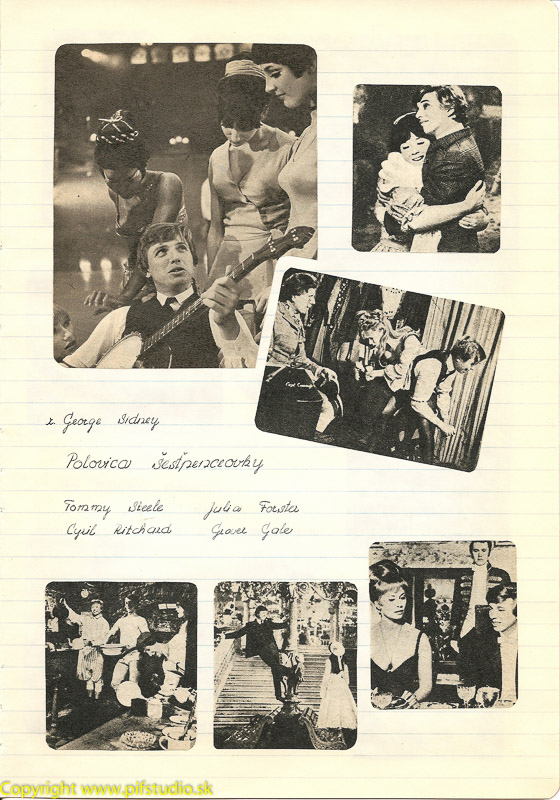 r. George Sidney
Polovica šesťpenceovky
Tommy Steele Julia Forster
Cyril Ritchard Grover Gale
Copyright www.pifstudio.sk